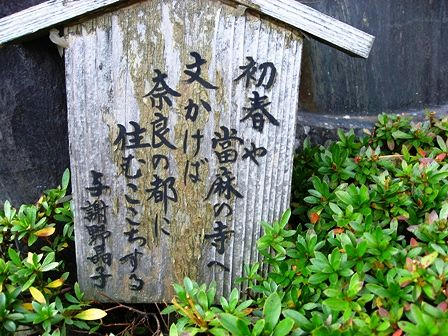 初春や
當麻の寺へ
丈かけば
奈良の都に
住むここちする
与謝野晶子